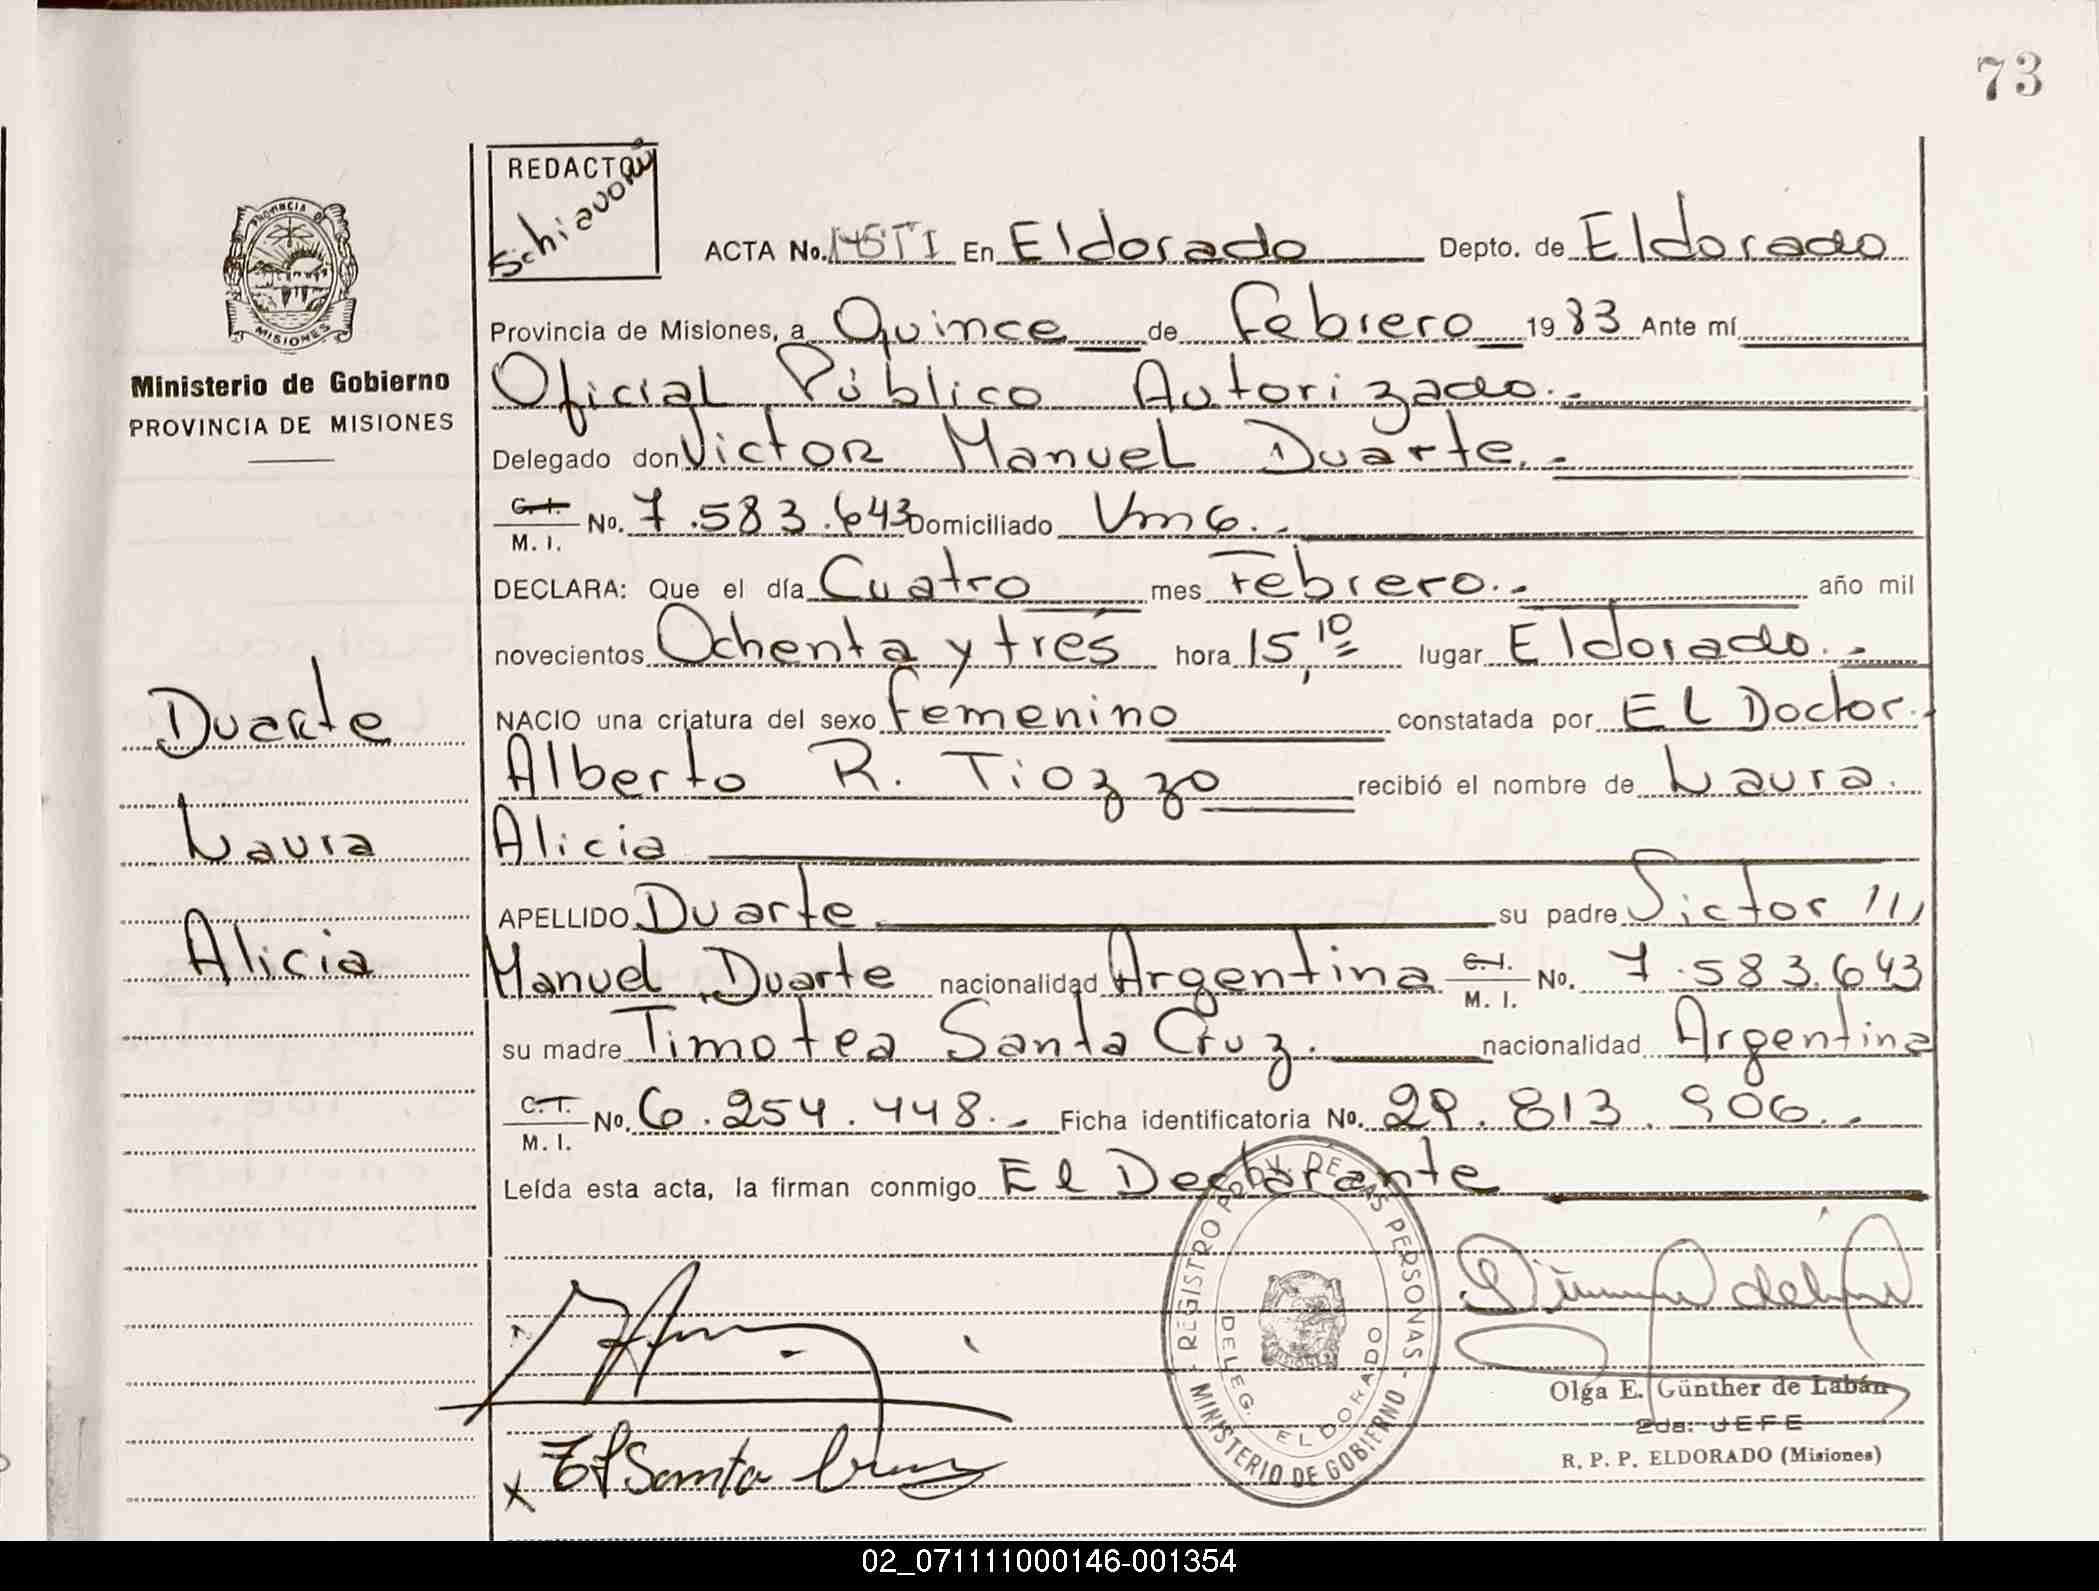 73
REDACTOR
Schiavoni
PROVINCIA DE
MISIONES
Ministerio de Gobierno
PROVINCIA DE MISIONES
ACTA No. En Eldorado Depto. de Eldorado
Provincia de Misiones, a Quince de Febrero 1983 Ante mí
Oficial Público Autorizado.
Delegado don Victor Manuel Duarte.
C.I.
M. I.
No. 7.583.643 Domiciliado
DECLARA: Que el día Cuatro mes Febrero. año mil
novecientos Ochenta y tres hora 15,10 lugar Eldorado.
NACIO una criatura del sexo femenino constatada por El Doctor.
Alberto R. Tiozzo recibió el nombre de Laura.
Alicia
APELLIDO Duarte su padre Victor
Manuel Duarte nacionalidad Argentina C.I. M. I. No. 7.583.643
su madre Timotea Santa Cruz. nacionalidad Argentina
C.I.
M. I.
No. 6.254.448. Ficha identificatoria No. 29.813.906.
Leída esta acta, la firman conmigo El Declarante
Duarte
Laura
Alicia
Santa Cruz
REGISTRO PROV. DE LAS PERSONAS
MINISTERIO DE GOBIERNO
DELEG. ELDORADO
Olga E. Günther de Labán
2da. JEFE
R. P. P. ELDORADO (Misiones)
02_071111000146-001354